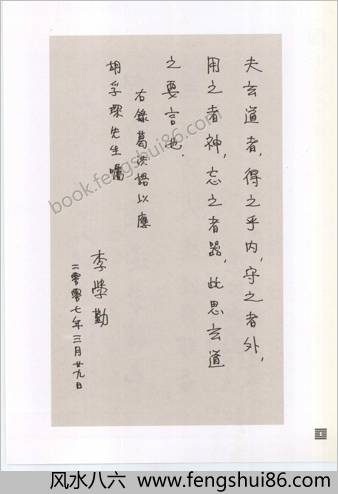 夫玄道者，得之乎内，守之者外，
用之者神，忘之者器，此思玄道
之要言也．
右錄葛洪語以應
胡孚琛先生囑
李學勤
二零零七年三月廿九日
book.fengshui86.com
风水八六 www.fengshui86.com